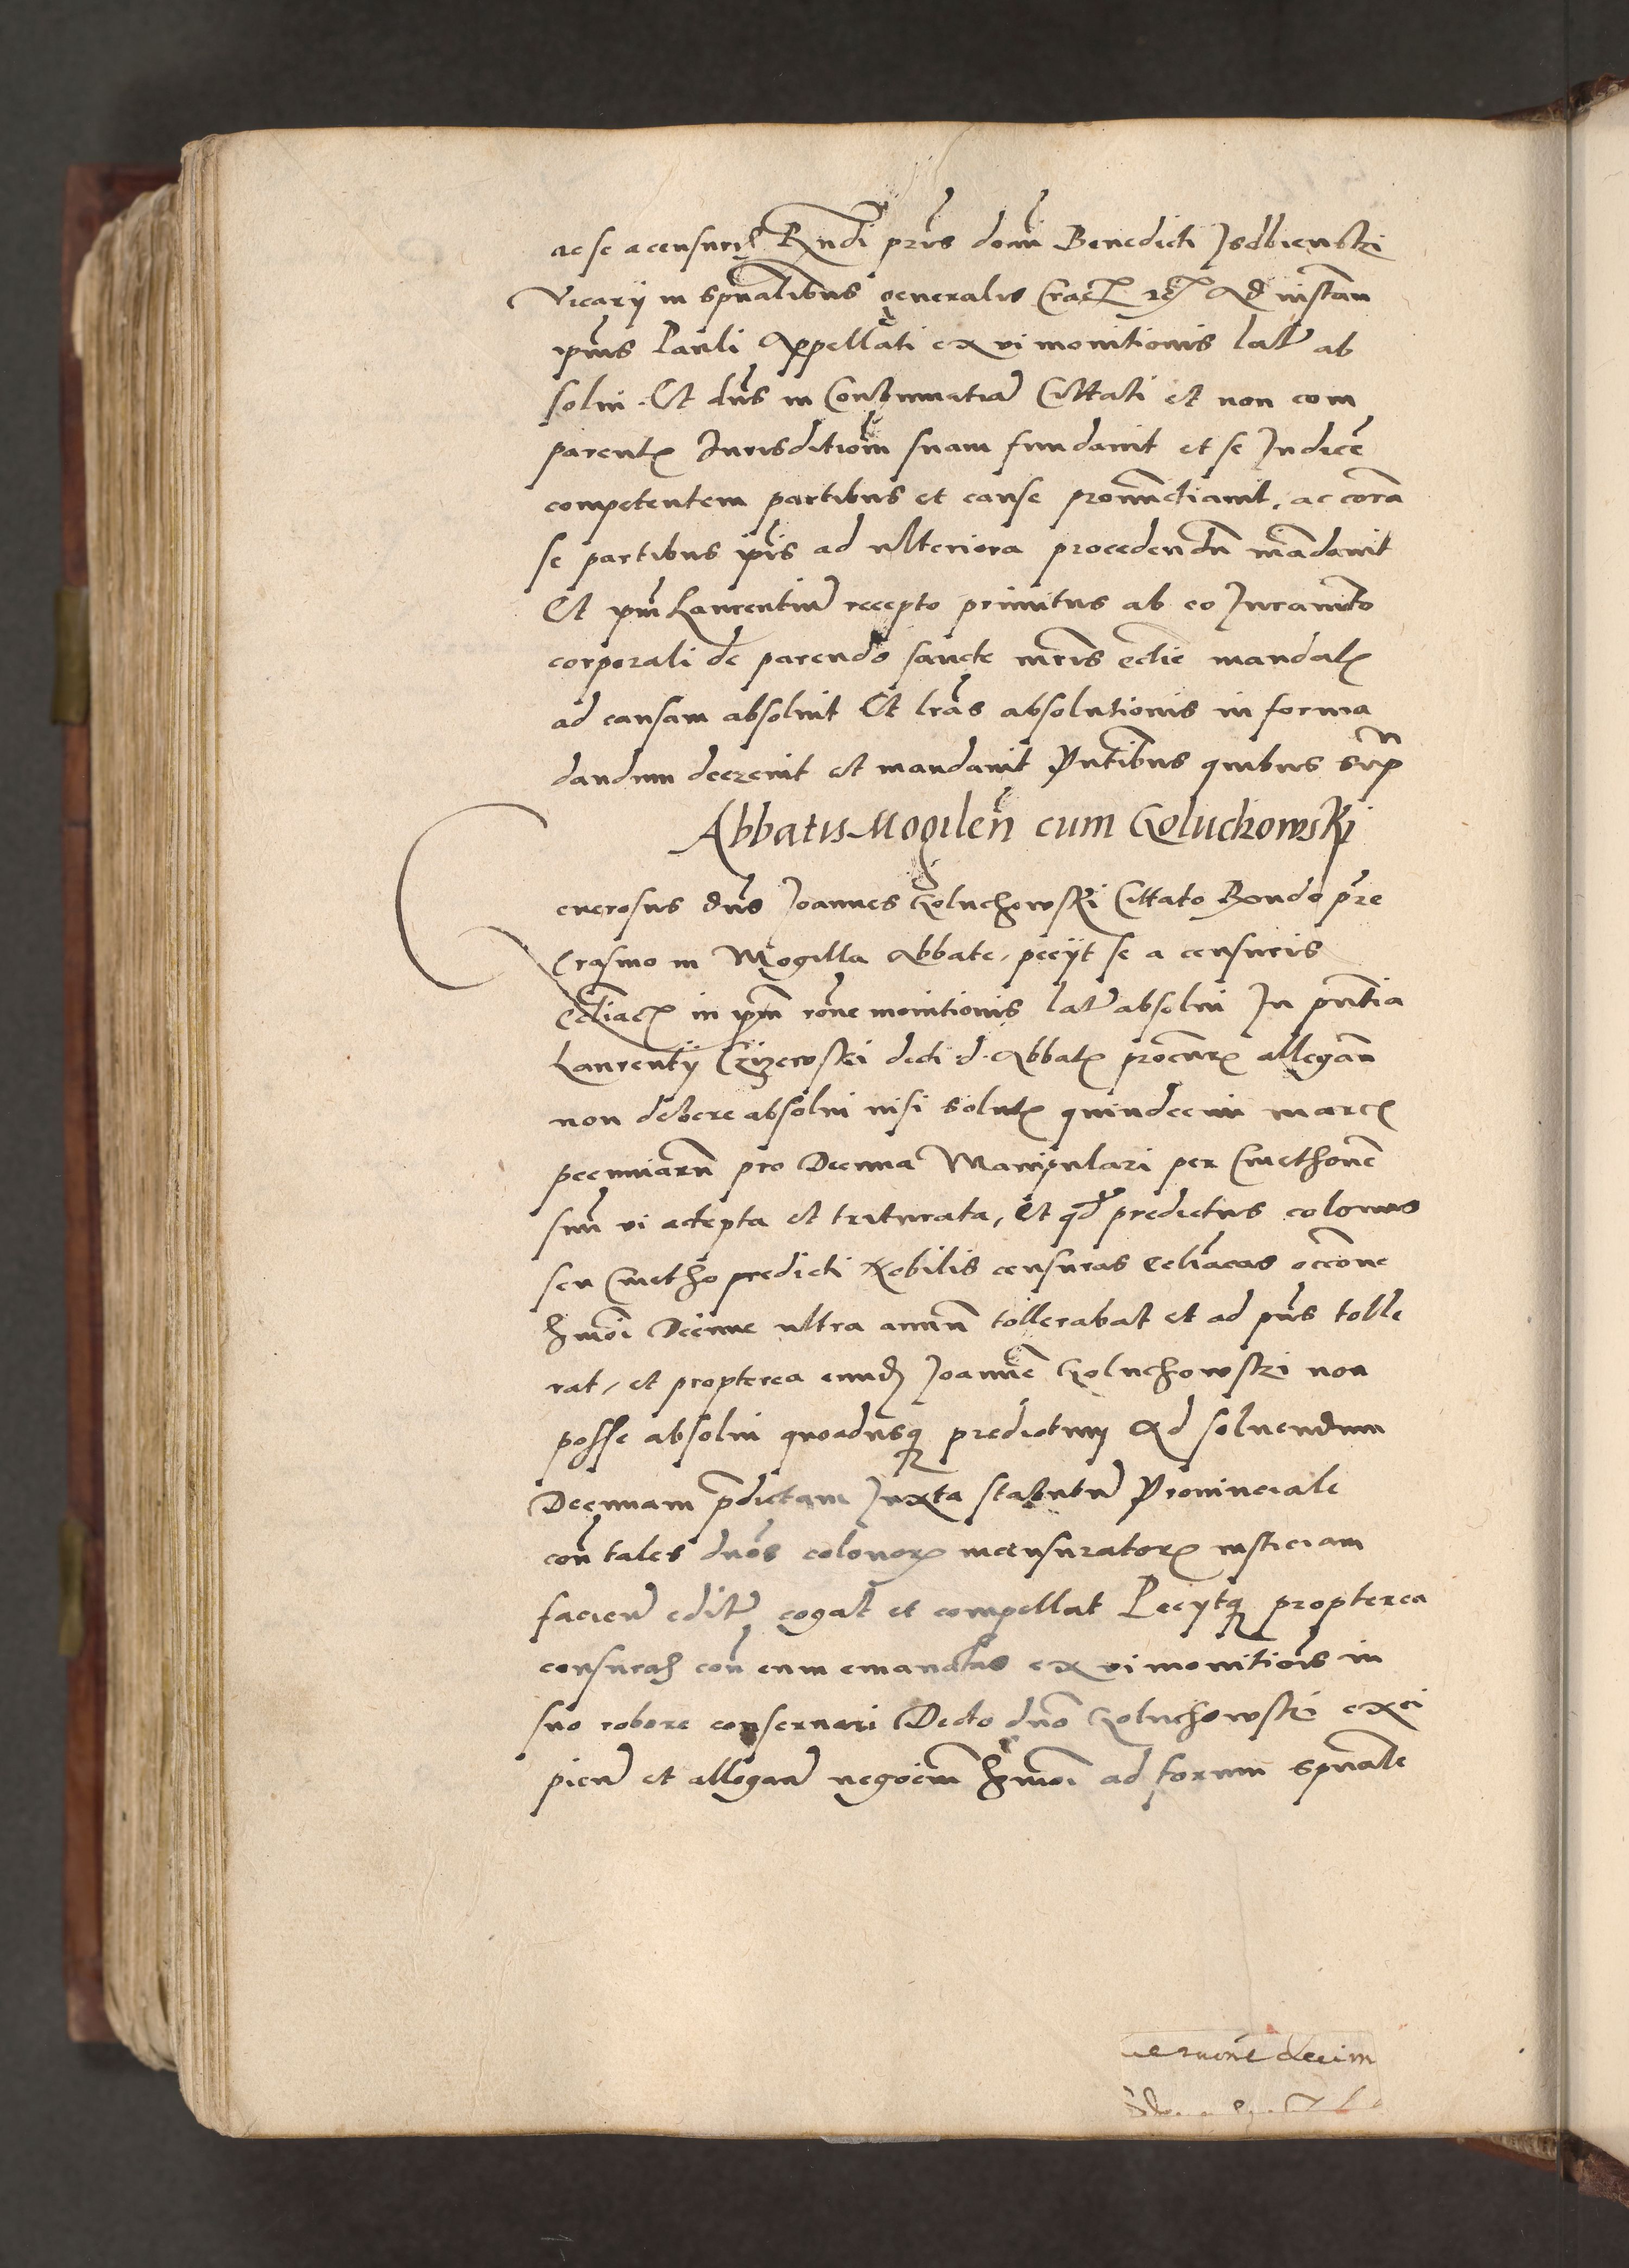 ac se a censuris Rndi pris domi Benedicti Isdbienski
Vicarij in spualibus generalis Crac. rc. Ad instan
ipius Pauli Appellati ex vi monitionis latis ab
solui Et dns in Contumatia Cittati et non com
parentis Iurisditiom suam fundauit et se Iudice
competentem partibus et cause pronunctiauit, ac cora
se partibus ipis ad ulteriora procedendu madauit
Et ipm Laurentiu recepto primitus ab eo Iuramto
corporali de parendo sancte mris eclie mandatis
ad causam absoluit Et lras absolutionis in forma
dandum decreuit et mandauit Pntibus quibus sup
Abbatis Mogilen cum Goluchowski
Generosus dns Joannes Goluchowski Cittato Rndo pre
Erasmo in Mogilla Abbate, pecijt se a censuris
Ecliacis in ipm rone monitionis latis absolui In pntia
Laurentij Crizewski dicti d. Abbatis procuris allegan
non debere absolui nisi solutis quindecim marcis
pecuniaru pro Decima Manipulari per Cmethone
suu vi adepta et triturata, Et qd predictus colonus
seu Cmetho predicti Nobilis censuras Ecliacas occone
hmoi Decime ultra annu tollerabat et ad pns tolle
rat, et propterea eund Joanne Goluchowski non
posse absolui quoadusq predictum Ad soluendum
Decimam pdictam Iuxta statutu Prouinciale
con tales dnos colonoru incensuratoru iusticiam
facien editu cogat et compellat Pecytq propterea
censuras con eum emanatas ex vi monitiois in
suo robore conseruari Dicto dno Goluchowski exci
pien et allegan negocium hmoi ad forum spuale
decim